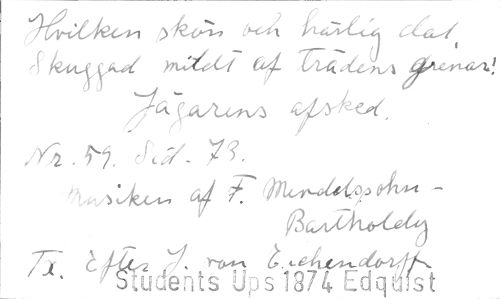 Hvilken skön och härlig dal
Skuggad mildt af trädens grenar!
Jägarens afsked.
Nr. 59. Sid. 73.
Musiken af F. Mendelssohn-
Bartholdy
Tx. Efter J. von Eichendorff
Students Ups 1874 Edquist